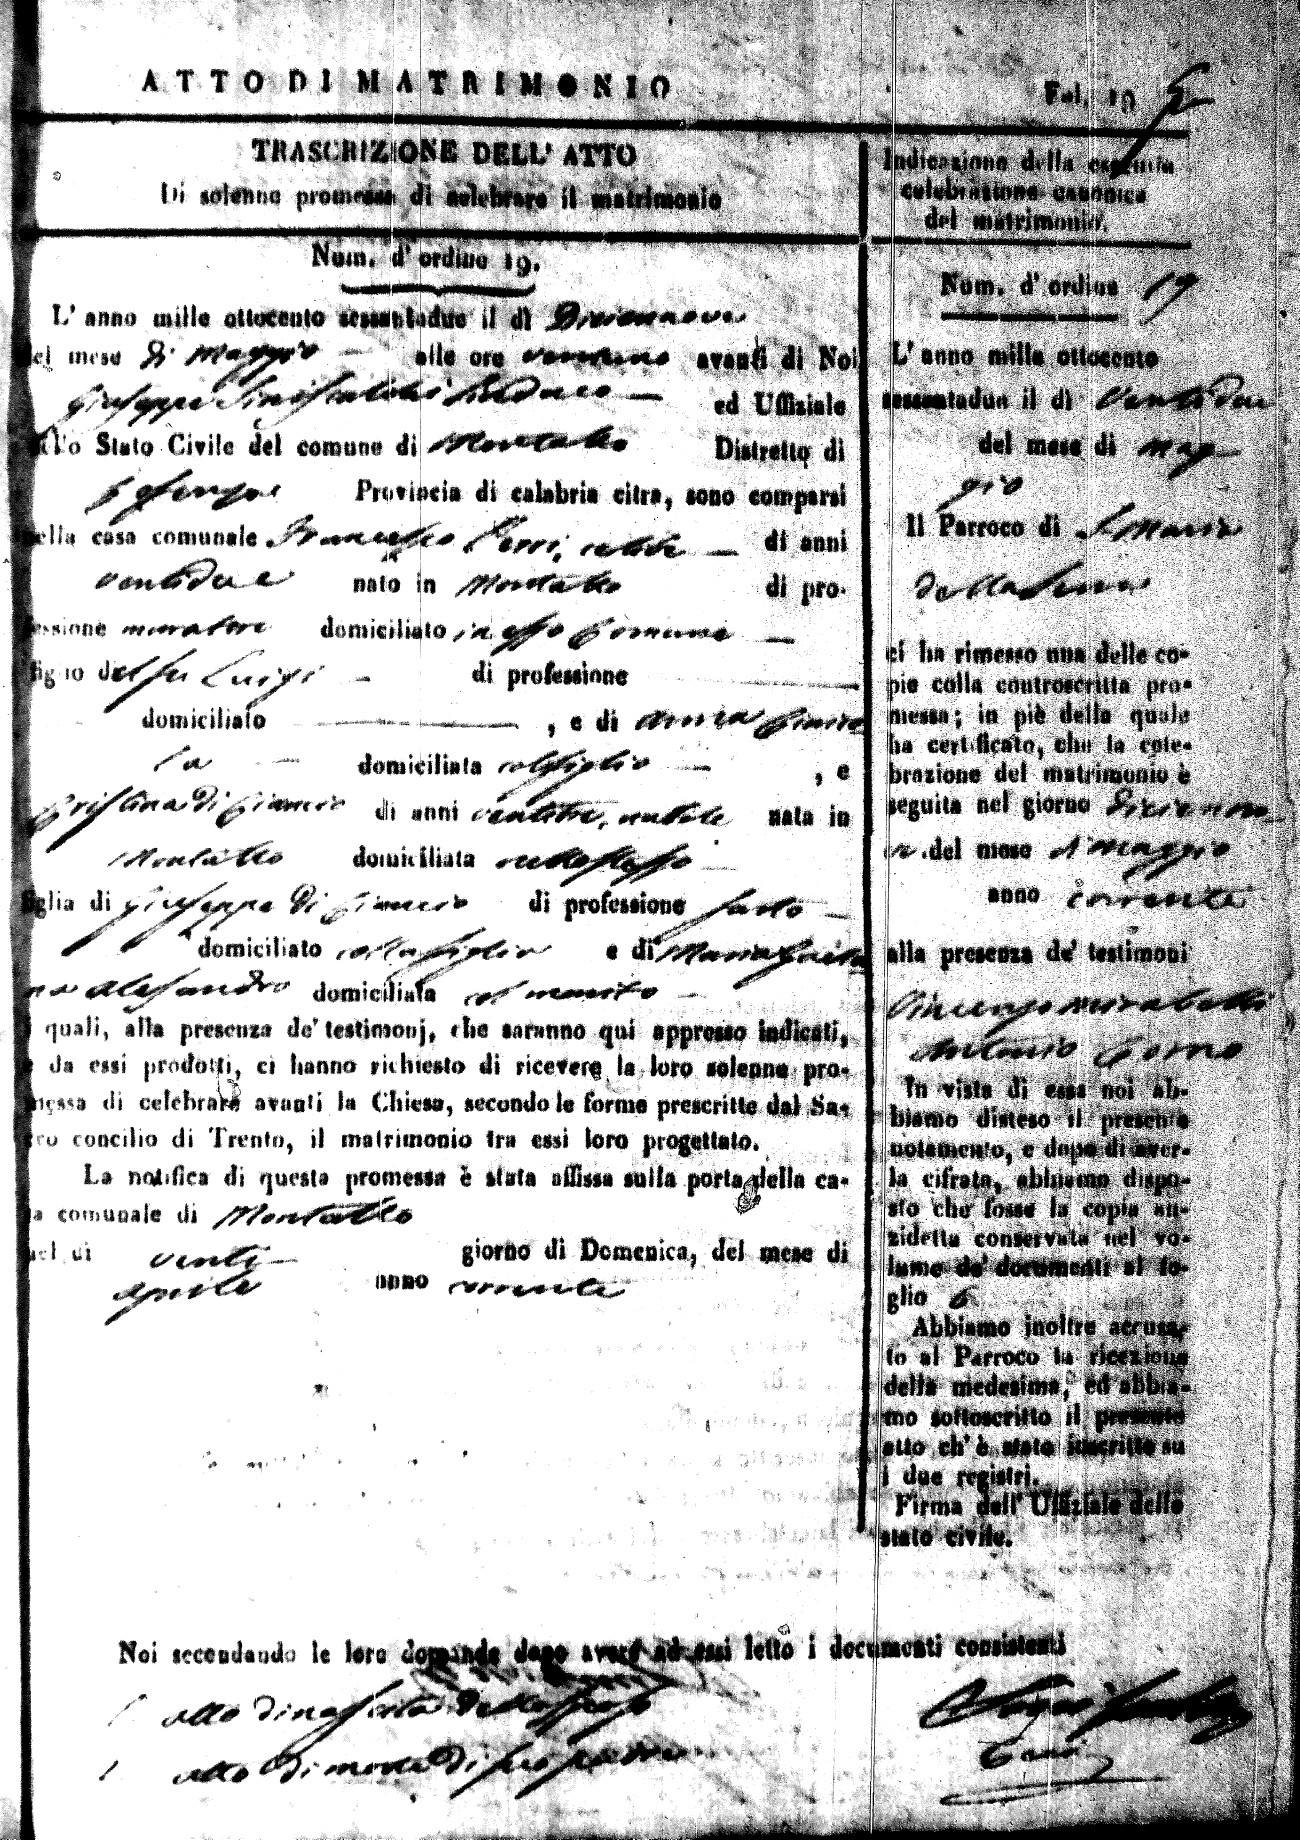 ATTO DI MATRIMONIO
Fol. 19
TRASCRIZIONE DELL' ATTO
Di solenne promessa di celebrare il matrimonio
Num. d' ordine 19.
L' anno mille ottocento sessantadue il dì Diciannove
del mese di Maggio alle ore ventuno avanti di Noi
Giuseppe Siniscalchi Sindaco ed Uffiziale
dello Stato Civile del comune di Montalto Distretto di
Cosenza Provincia di calabria citra, sono comparsi
nella casa comunale Francesco Perri, celibe di anni
ventidue nato in Montalto di pro-
fessione muratore domiciliato in esso Comune
figlio del fu Luigi di professione
domiciliato , e di Anna
domiciliata col figlio , e
Cristina di Ciancio di anni ventitre, nubile nata in
Montalto domiciliata nello stesso
figlia di Giuseppe di Ciancio di professione sarto
domiciliato colla figlia e di Maria Gaeta
na Alesandro domiciliata col marito
i quali, alla presenza de' testimonj, che saranno qui appresso indicati,
e da essi prodotti, ci hanno richiesto di ricevere la loro solenne pro-
messa di celebrare avanti la Chiesa, secondo le forme prescritte dal Sa-
cro concilio di Trento, il matrimonio tra essi loro progettato.
La notifica di questa promessa è stata affissa sulla porta della ca-
sa comunale di Montalto
nel di venti giorno di Domenica, del mese di
aprile anno corrente
Indicazione della canonica
celebrazione canonica
del matrimonio.
Num. d' ordine 19
L' anno mille ottocento
sessantadue il dì Ventidue
del mese di Mag
gio
Il Parroco di S. Maria
della Serra
ci ha rimesso una delle co-
pie colla controscritta pro-
messa; in piè della quale
ha certificato, che la cele-
brazione del matrimonio è
seguita nel giorno Diciannov
e del mese di Maggio
anno corrente
alla presenza de' testimoni
Vincenzo Mirabelli
Antonio
In vista di essa noi ab-
biamo disteso il presente
notamento, e dopo di aver-
la cifrata, abbiamo dispo-
sto che fosse la copia an-
zidetta conservata nel vo-
lume de' documenti al fo-
glio 6
Abbiamo inoltre accusa-
to al Parroco la ricezione
della medesima, ed abbia-
mo sottoscritto il presente
atto ch' è stato inscritto su
i due registri.
Firma dell' Uffiziale dello
stato civile.
Noi secondando le loro domande dopo avere ad essi letto i documenti consistenti
1 atto di nascita dello sposo
1 atto di morte di suo padre